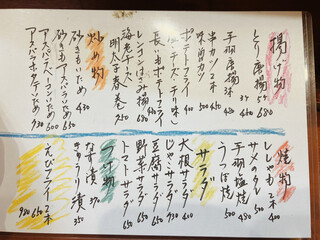 揚げ物
とり唐揚 5ヶ 480
手羽唐揚 3本 480
串カツ 2本 500
味噌カツ 500
ポテトフライ 400
(チーズ・チリ味)
長いもポテトフライ
レンコンはさみ揚 680
海老チーズ
明太子春巻 750
炒め物
砂ぎもいため 430
砂ぎもアスパラいため 650
アスパラベーコンいため 600
アスパラホタテいため 930
焼物
ししゃも 5本 400
サメのヒレ 500
手羽塩焼 480
うつぼ焼
サラダ
大根サラダ 610
じゃこサラダ 730
豆腐サラダ 650
野菜サラダ 650
トマトサラダ 650
つけ物
なす漬 370
きゅうり漬 350
えびフライ 2本 650
980